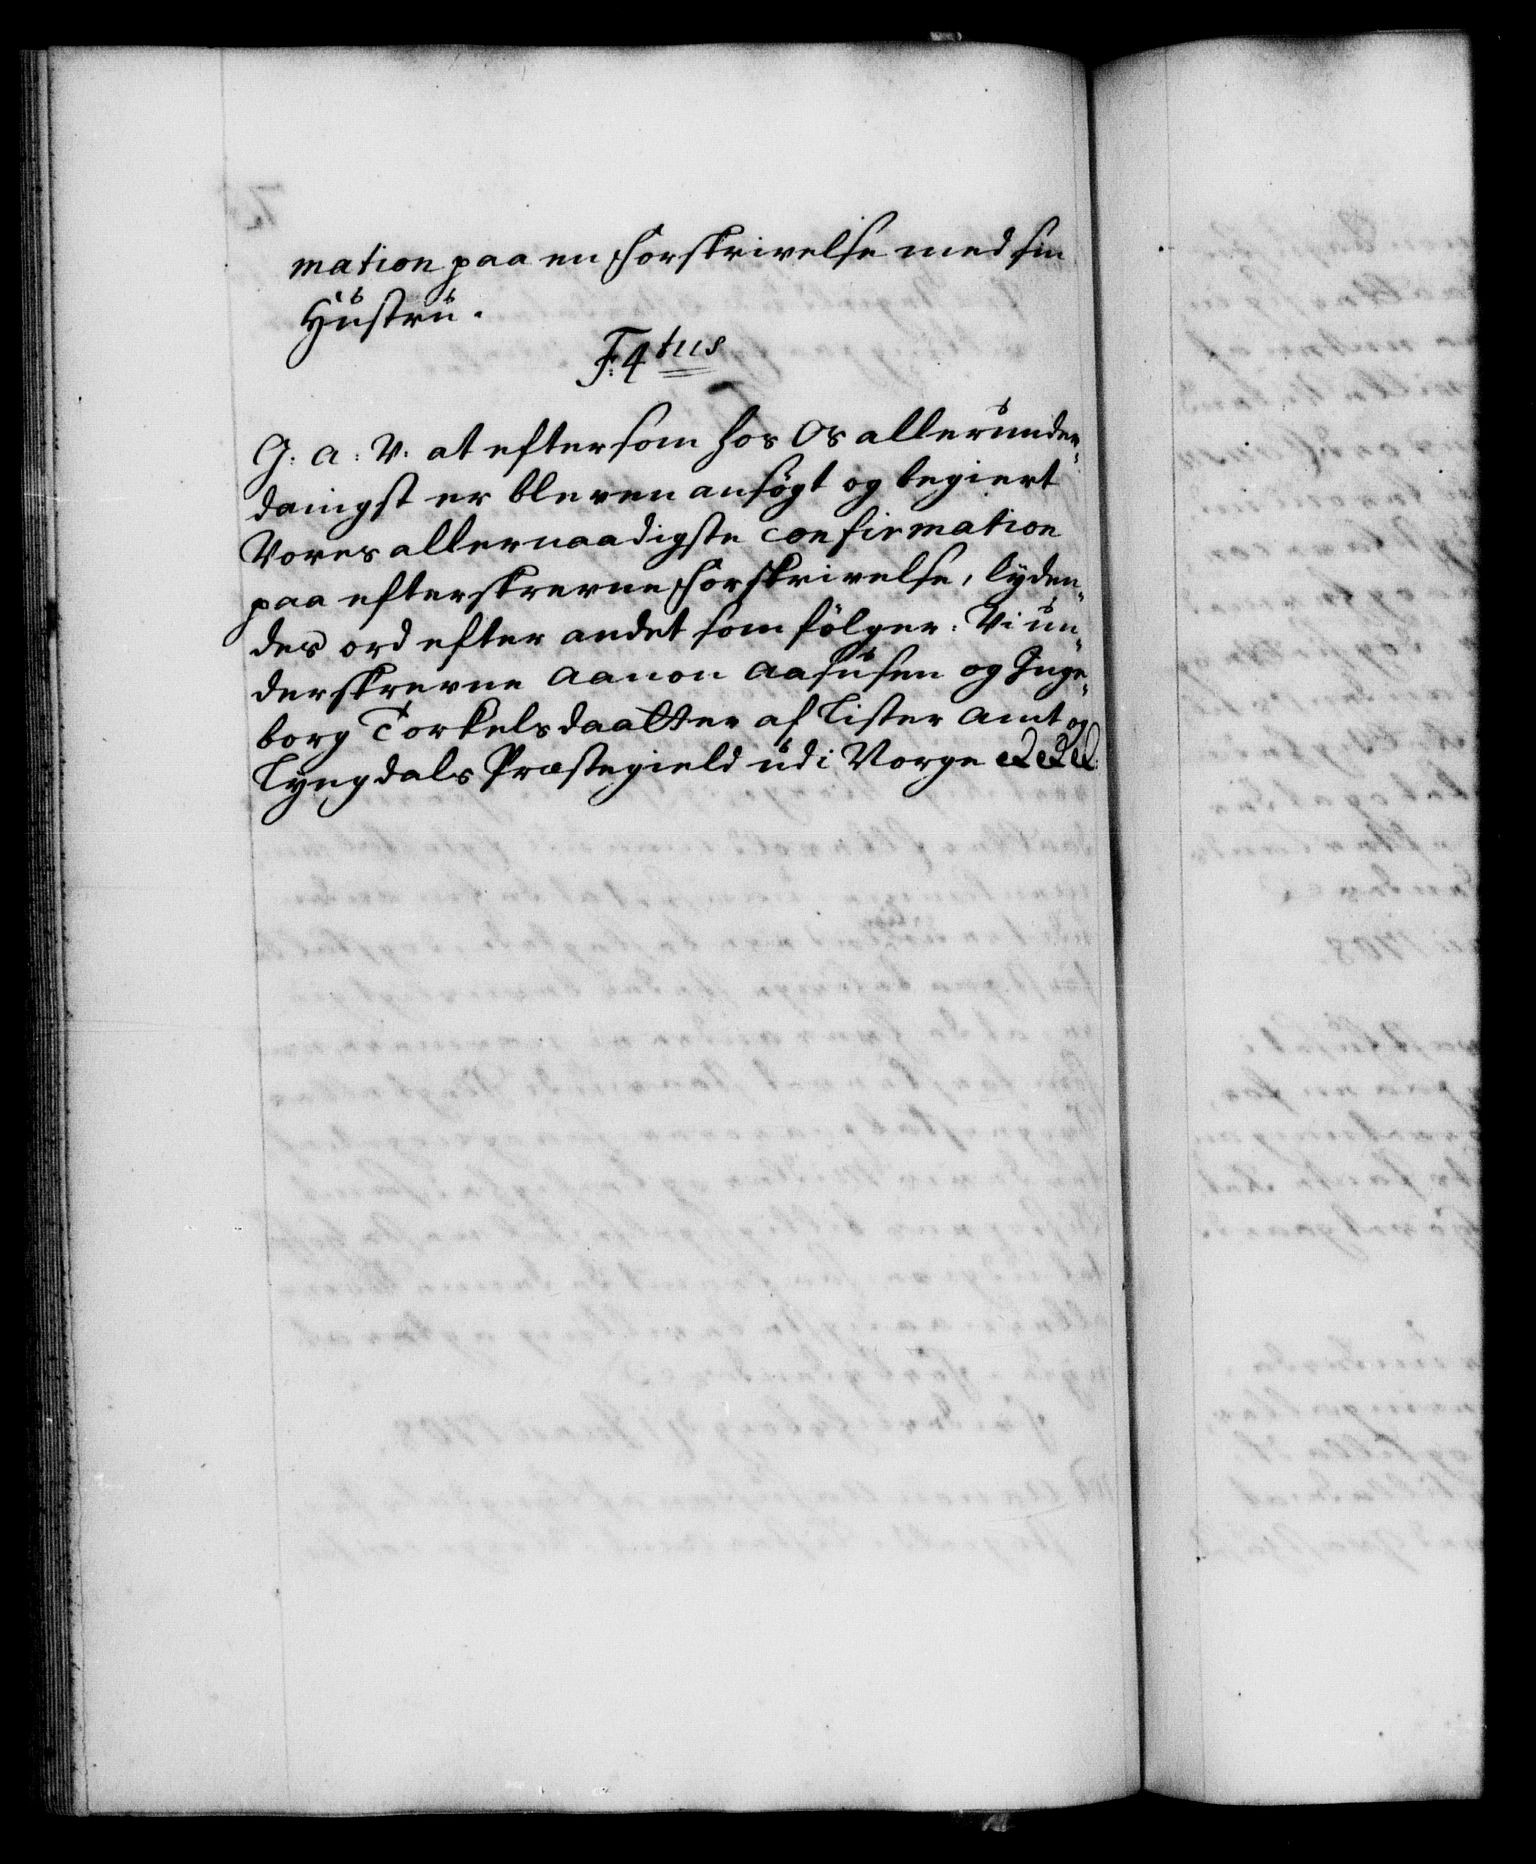 mation paa en Forskrivelse med sin
Hustru.
F. 4tus
G: A: V: at eftersom hos Os allerunder„
danigst er bleven ansøgt og begiert
Vores allernaadigste Confirmation
paa efterskrevne Forskrivelse, lyden„
des ord efter andet som følger: Vi un„
derskrevne Aanon Aasusen og Inge„
borg Torkelsdaatter af Lister Amt og
Lyngdals Præstegield udi Norge &c &c &c